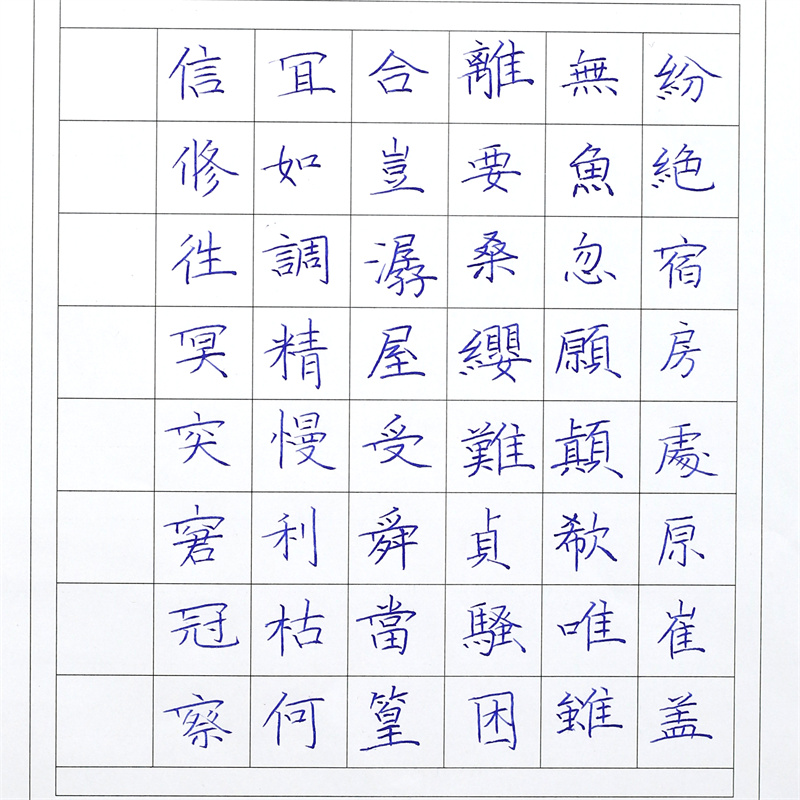 紛絶宿房處原崔盖
無魚忽願顛欷唯雖
離要桑纓難貞騷困
合豈潺屋受舜當篁
冝如調精慢利枯何
信修徃冥突窘冠察